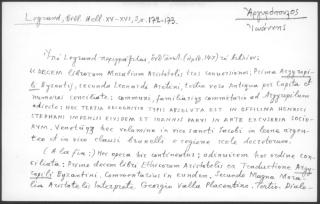 Legrand, Bibl. Hell. XV-XVI, 3, σ. 172-173.
Ἀργυρόπουλος
Ἰωάννης
Legrand
"Decem librorum Moralium Aristotelis tres conversiones: Prima Argyropyli Byzantij, secunda Leonardi Aretini, tertia vero Antiqua per Capita et numeros conciliate: communi, familiarique commentario ad Argyropilum adiecto: HEC TERTIO RECOGNITA TYPIS ABSOLUTA EST IN OFFICINA HENRICI STEPHANI IMPENSIS EIUSDEM ET IOANNIS PARVI IN ARTE EXCUSORIA SOCIORUM. hec volumina in vico sancti Iacobi in leone argenteo et in vico clausi brunelli e regione scole decretorum.
(A la fin:) Hec opera hic continentur: adinvicem hoc ordine conciliata: Primo decem libri Ethicorum Aristotelis ex Traductione Argyropili Byzantini. Commentarius in eundem. Secundo Magna Moralia Aristotelis Interprete Georgio Valla Placentino. Tertio. Dialo-